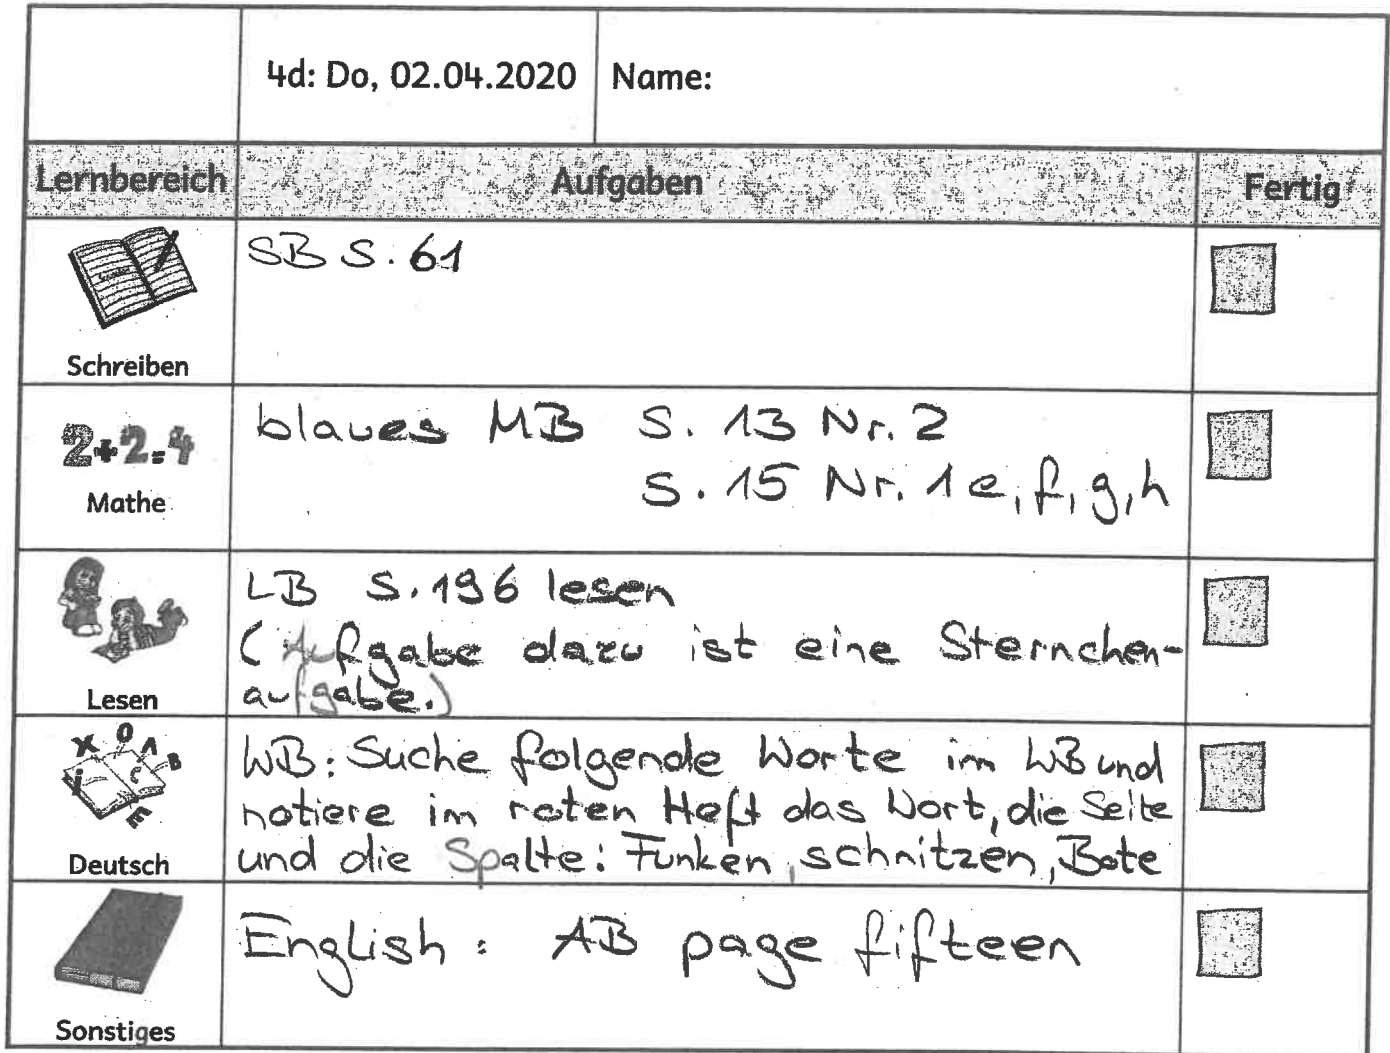 4d: Do, 02.04.2020 Name:
Lernbereich Aufgaben Fertig
SB S. 61
Schreiben
2+2=4
blaues MB S. 13 Nr. 2
S. 15 Nr. 1e, f, g, h
Mathe
LB S. 196 lesen
(Aufgabe dazu ist eine Sternchen-
aufgabe.)
Lesen
X O A B C i E
WB: Suche folgende Worte im WB und
notiere im roten Heft das Wort, die Seite
und die Spalte: Funken, schnitzen, Bote
Deutsch
English: AB page fifteen
Sonstiges